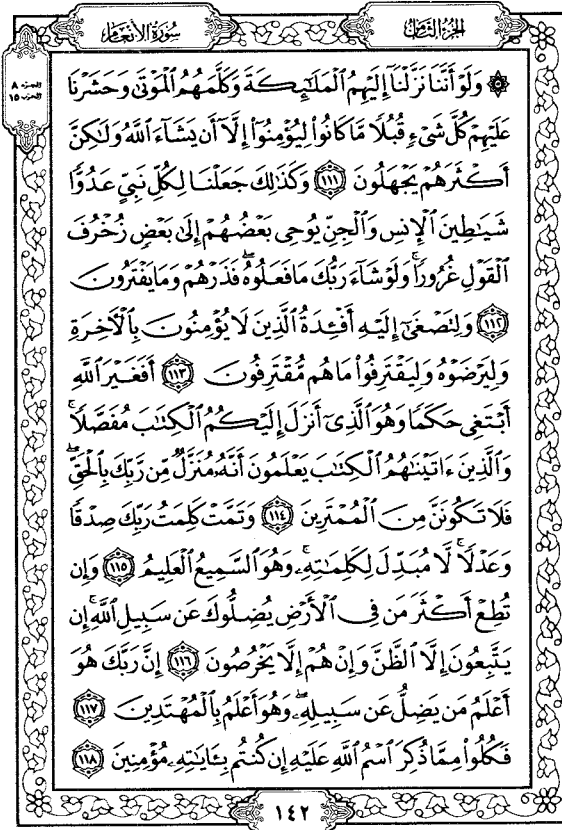 الجزء الثامن
سورة الأنعام
الجزء ٨
الحزب ١٥
۞ وَلَوْ أَنَّنَا نَزَّلْنَا إِلَيْهِمُ الْمَلَٰٓئِكَةَ وَكَلَّمَهُمُ الْمَوْتَىٰ وَحَشَرْنَا
عَلَيْهِمْ كُلَّ شَىْءٍ قُبُلًا مَّا كَانُوا۟ لِيُؤْمِنُوٓا۟ إِلَّآ أَن يَشَآءَ اللَّهُ وَلَٰكِنَّ
أَكْثَرَهُمْ يَجْهَلُونَ ١١١ وَكَذَٰلِكَ جَعَلْنَا لِكُلِّ نَبِىٍّ عَدُوًّا
شَيَٰطِينَ الْإِنسِ وَالْجِنِّ يُوحِى بَعْضُهُمْ إِلَىٰ بَعْضٍ زُخْرُفَ
الْقَوْلِ غُرُورًا ۚ وَلَوْ شَآءَ رَبُّكَ مَا فَعَلُوهُ ۖ فَذَرْهُمْ وَمَا يَفْتَرُونَ
١١٢ وَلِتَصْغَىٰٓ إِلَيْهِ أَفْـِٔدَةُ الَّذِينَ لَا يُؤْمِنُونَ بِالْـَٔاخِرَةِ
وَلِيَرْضَوْهُ وَلِيَقْتَرِفُوا۟ مَا هُم مُّقْتَرِفُونَ ١١٣ أَفَغَيْرَ اللَّهِ
أَبْتَغِى حَكَمًا وَهُوَ الَّذِىٓ أَنزَلَ إِلَيْكُمُ الْكِتَٰبَ مُفَصَّلًا ۚ
وَالَّذِينَ ءَاتَيْنَٰهُمُ الْكِتَٰبَ يَعْلَمُونَ أَنَّهُۥ مُنَزَّلٌ مِّن رَّبِّكَ بِالْحَقِّ ۖ
فَلَا تَكُونَنَّ مِنَ الْمُمْتَرِينَ ١١٤ وَتَمَّتْ كَلِمَتُ رَبِّكَ صِدْقًا
وَعَدْلًا ۚ لَّا مُبَدِّلَ لِكَلِمَٰتِهِۦ ۚ وَهُوَ السَّمِيعُ الْعَلِيمُ ١١٥ وَإِن
تُطِعْ أَكْثَرَ مَن فِى الْأَرْضِ يُضِلُّوكَ عَن سَبِيلِ اللَّهِ ۚ إِن
يَتَّبِعُونَ إِلَّا الظَّنَّ وَإِنْ هُمْ إِلَّا يَخْرُصُونَ ١١٦ إِنَّ رَبَّكَ هُوَ
أَعْلَمُ مَن يَضِلُّ عَن سَبِيلِهِۦ ۖ وَهُوَ أَعْلَمُ بِالْمُهْتَدِينَ ١١٧
فَكُلُوا۟ مِمَّا ذُكِرَ اسْمُ اللَّهِ عَلَيْهِ إِن كُنتُم بِـَٔايَٰتِهِۦ مُؤْمِنِينَ ١١٨
١٤٢